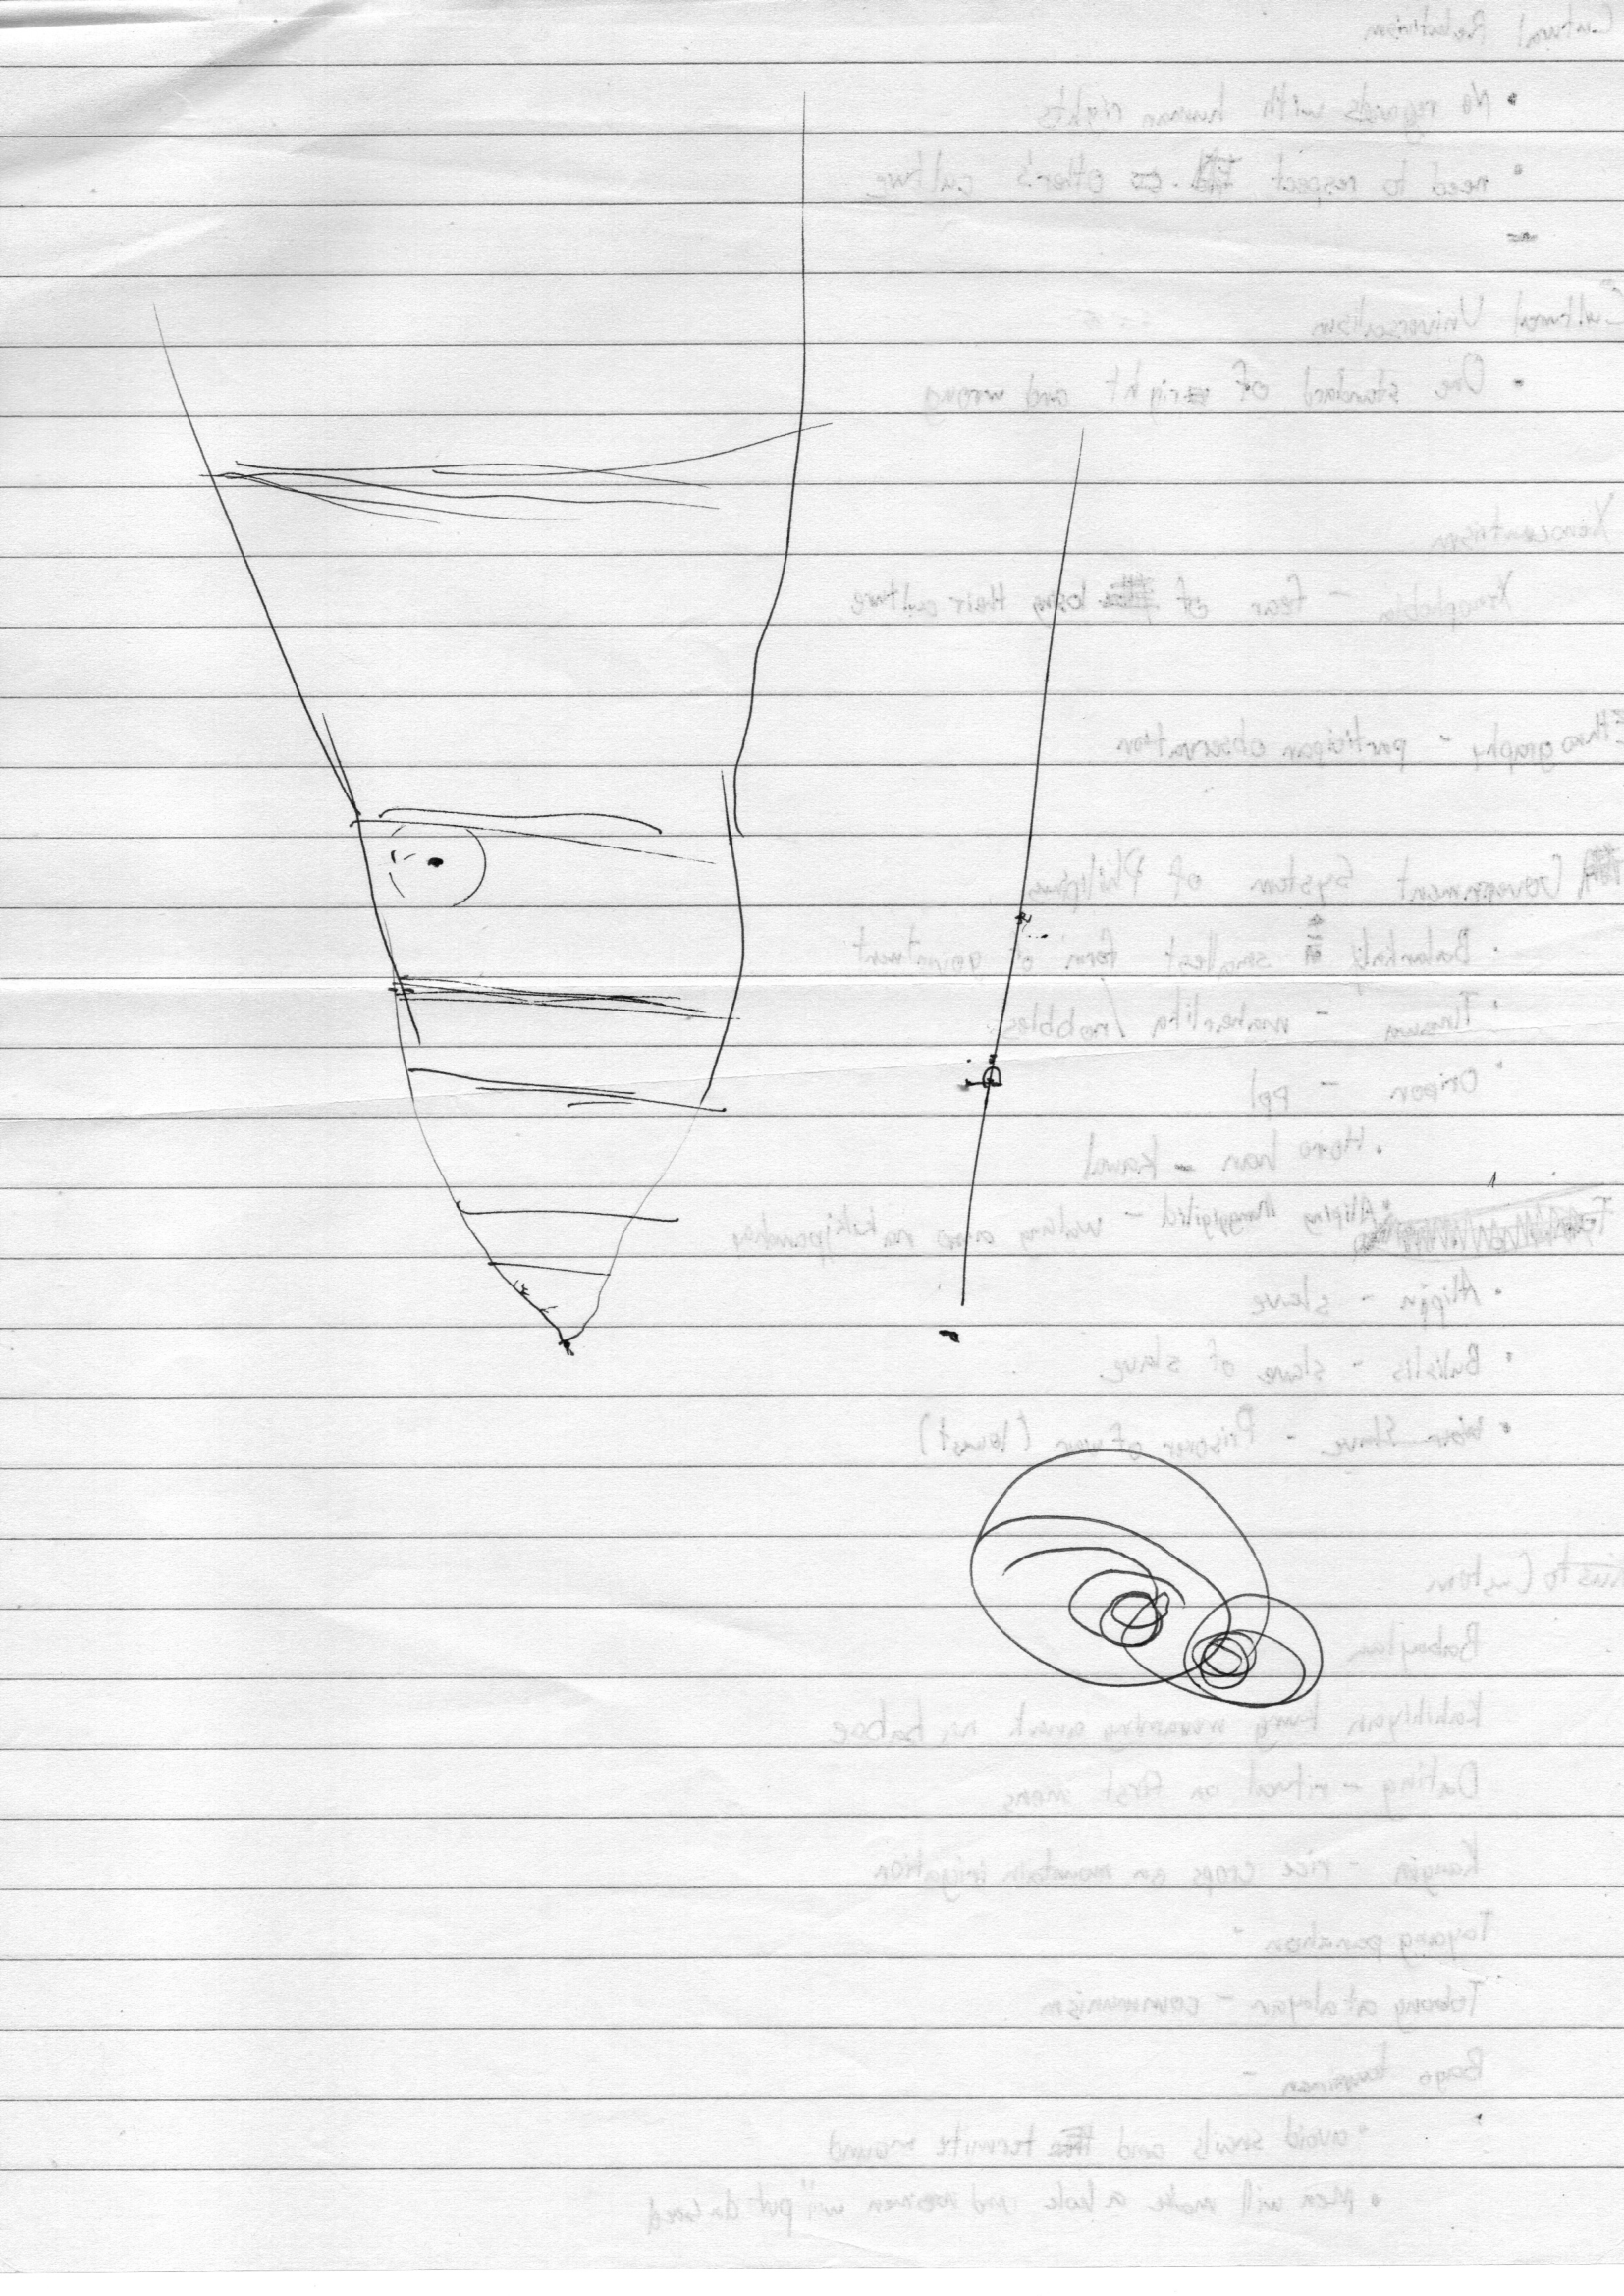 Cultural Relativism
• No regards with human rights
• need to respect other's culture
-
Cultural Universalism
• One standard of right and wrong
Xenocentrism
Xenophobia - fear of losing their culture
Ethnography - participan observation
Government System of
• smallest form of
• Timawa - maharlika / nobbles
• Oripon - ppl
• Horo han - kawal
• Aliping
• Alipin - slave
• - slave of slave
• War Slave - Prisoner of war (lowest)
Custom
Babaylan
kung na babae
Dating - ritual on first mens
Kaingin - rice crops on mountain irigation
Tayang panahon -
- communism
Bago -
• avoid snails and termite mound
• Men will make a hole and women will put